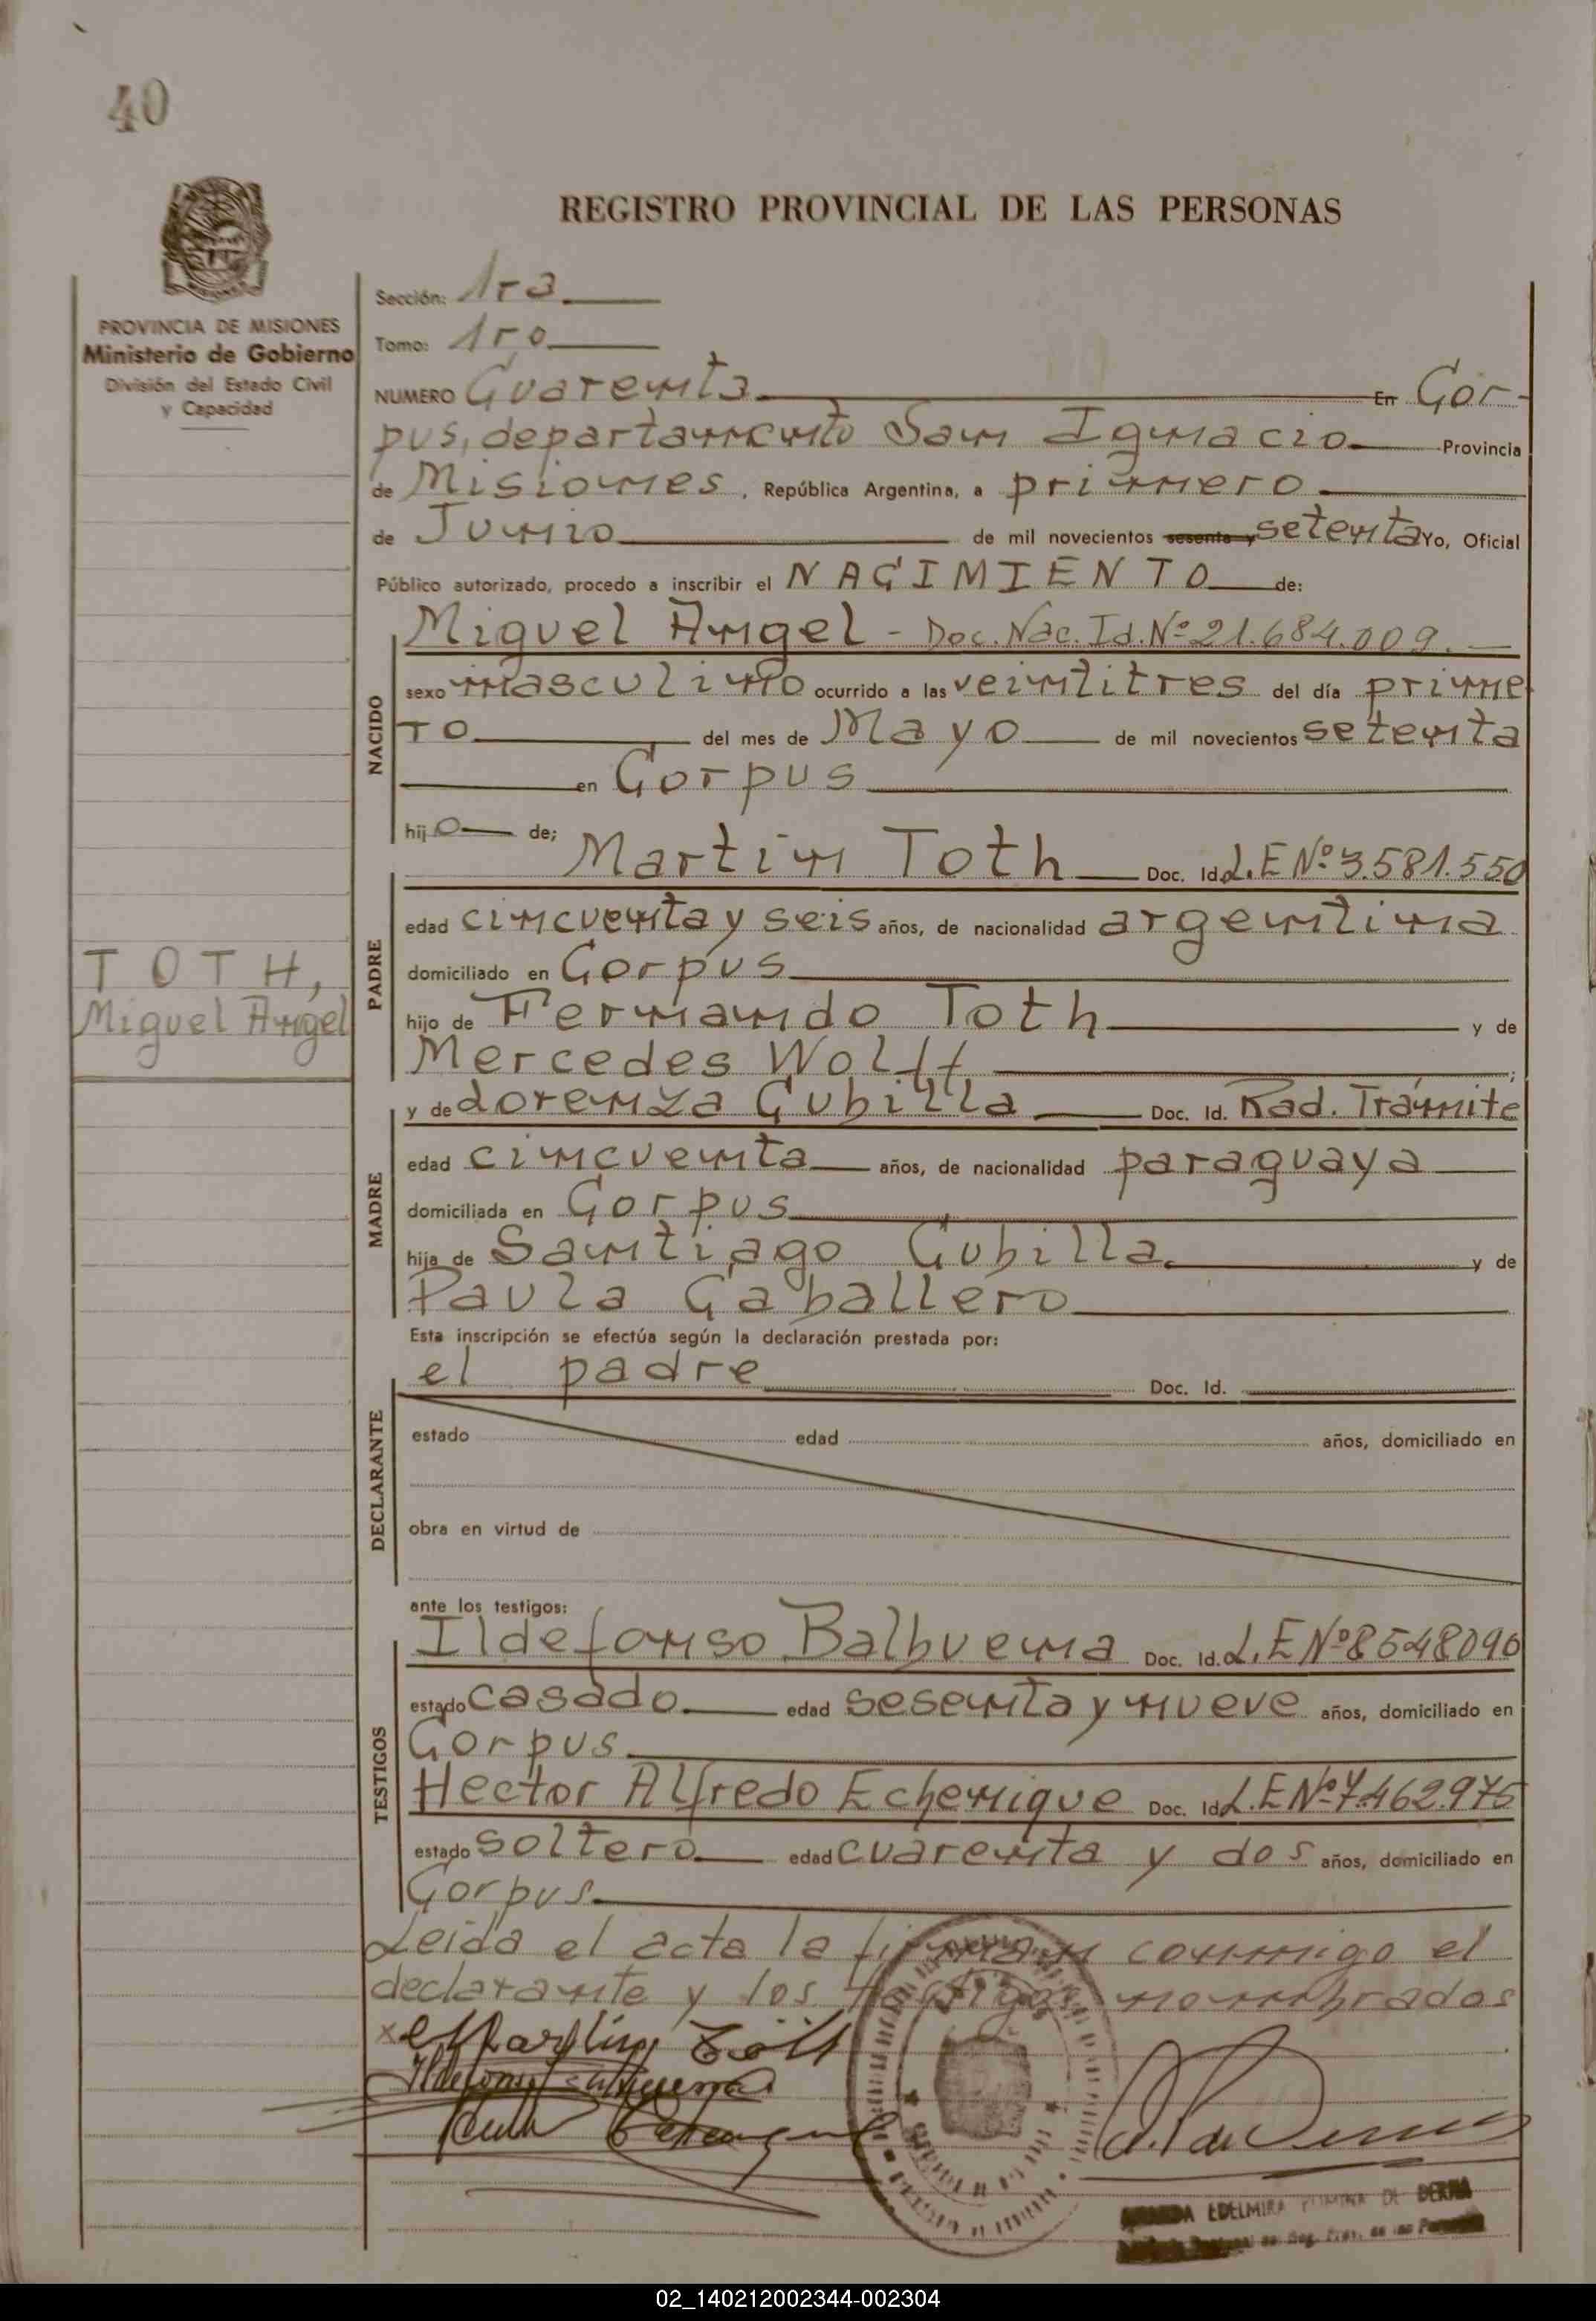 40
REGISTRO PROVINCIAL DE LAS PERSONAS
PROVINCIA DE MISIONES
Ministerio de Gobierno
División del Estado Civil
y Capacidad
Sección: 1ra
Tomo: 1ro
NUMERO Cuarenta En Cor-
pus, departamento San Ignacio Provincia
de Misiones, República Argentina, a primero
de Junio de mil novecientos sesenta y setenta Yo, Oficial
Público autorizado, procedo a inscribir el NACIMIENTO de:
Miguel Angel - Doc. Nac. Id. Nº 21.684.009.
NACIDO
sexo masculino ocurrido a las veintitres del día prime
ro del mes de Mayo de mil novecientos setenta
en Corpus
hijo de;
Martin Toth Doc. Id. L.E Nº 3.581.550
PADRE
edad cincuenta y seis años, de nacionalidad argentina
domiciliado en Corpus
TOTH,
Miguel Angel
hijo de Fernando Toth y de
Mercedes Wolff ;
y de Lorenza Cubilla Doc. Id. Rad. Trámite
MADRE
edad cincuenta años, de nacionalidad paraguaya
domiciliada en Corpus
hija de Santiago Cubilla y de
Paula Caballero
Esta inscripción se efectúa según la declaración prestada por:
el padre Doc. Id.
DECLARANTE
estado edad años, domiciliado en
obra en virtud de
ante los testigos:
Ildefonso Balbuena Doc. Id. L.E Nº 8548090
TESTIGOS
estado casado edad sesenta y nueve años, domiciliado en
Corpus
Hector Alfredo Echenique Doc. Id. L.E Nº 7.462.975
estado soltero edad cuarenta y dos años, domiciliado en
Corpus
Leida el acta la firman conmigo el
declarante y los testigos nombrados
x Martin
EDELMIRA DE BERNA
02_140212002344-002304